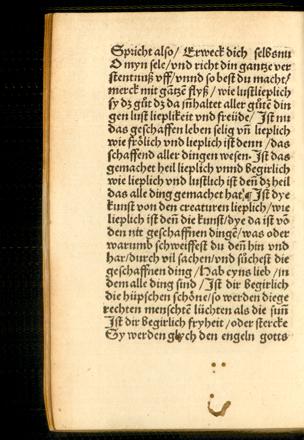 Spricht also/ Erweck dich selbs nu
O myn sele/ vnd richt din gantze ver
stentnuß vff/ vnnd so best du macht/
merck mit gätzē flyß/ wie lustlieplich
sy dz gůt dz da jnhaltet aller gůtē din
gen lust lieplikeit vnd freüde/ Ist nu
das geschaffen leben selig vn̄ lieplich
wie frölich vnd lieplich ist denn/ das
schaffend aller dingen wesen. Ist das
gemachet heil lieplich vnnd begirlich
wie lieplich vnd lustlich ist den̄ dz heil
das alle ding gemachet hat. Ist dye
kunst von den creaturen lieplich/ wie
lieplich ist den̄ die kunst/ dye da ist vō
den nit geschaffnen dingē/ was oder
warumb schweiffest du den̄ hin vnd
har/ durch vil sachen/ vnd sůchest die
geschaffnen ding/ Hab eyns lieb/ in
dem alle ding sind/ Ist dir begirlich
die hüpschen schöne/ so werden die ge
rechten menschē lüchtē als die sun̄
Ist dir begirlich fryheit/ oder stercke
Sy werden glych den engeln gotts